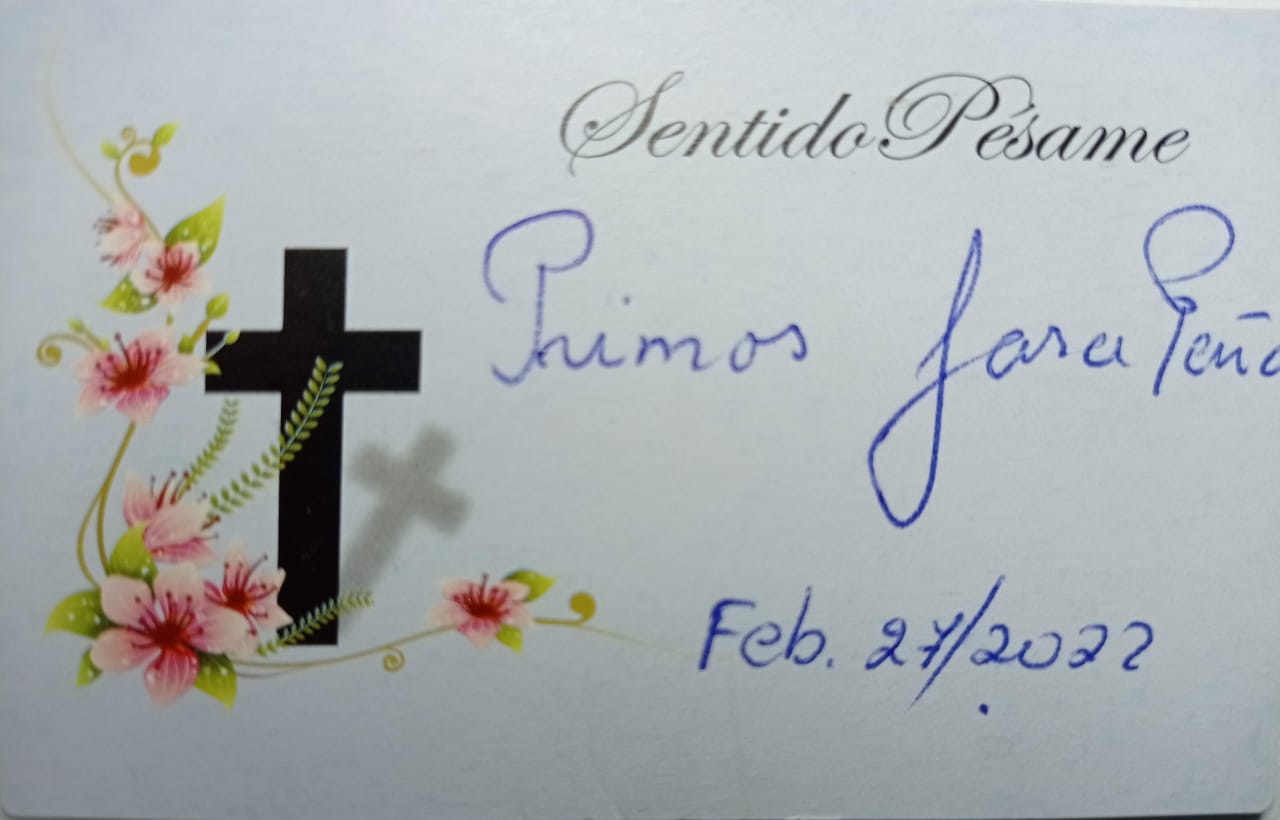 Sentido Pésame
Primos Jara Peña
Feb. 27/2022